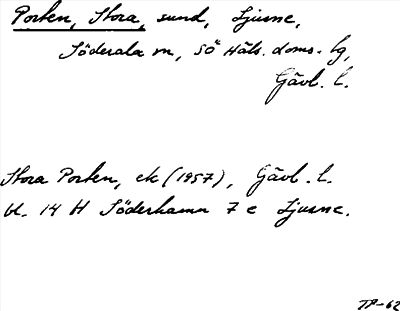 Porten, Stora, sund, Ljusne,
Söderala sn, SÖ Häls. doms. lg,
Gävl. l.
Stora Porten, ek (1957), Gävl. l.
bl. 14 H Söderhamn 7 e Ljusne.
TP-62